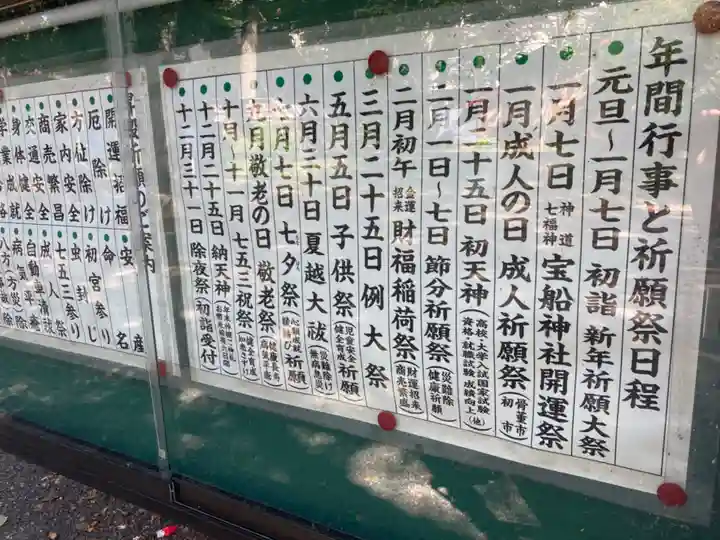 年間行事と祈願祭日程
元旦～一月七日 初詣 新年祈願大祭
一月七日 神道七福神 宝船神社開運祭
一月成人の日 成人祈願祭(骨董市初市)
一月二十五日 初天神(高校・大学入試国家試験(他)資格・就職試験成績向上)
二月一日～七日 節分祈願祭(災難除健康祈願)
二月初午 金運招来 財福稲荷祭(財運招来商売繁盛)
三月二十五日 例大祭
五月五日 子供祭 児童安全健全育成 祈願
六月三十日 夏越大祓(災難除け無病息災)
七月七日 七夕祭 祈願
九月敬老の日 敬老祭
十月・十一月 七五三祝祭
十二月二十五日 納天神
十二月三十一日 除夜祭(初詣受付)
開運招福
厄除け
方位除け
家内安全
商売繁昌
交通安全
身体健全
安産
命名
初宮参り
虫封じ
七五三参り
成人祭